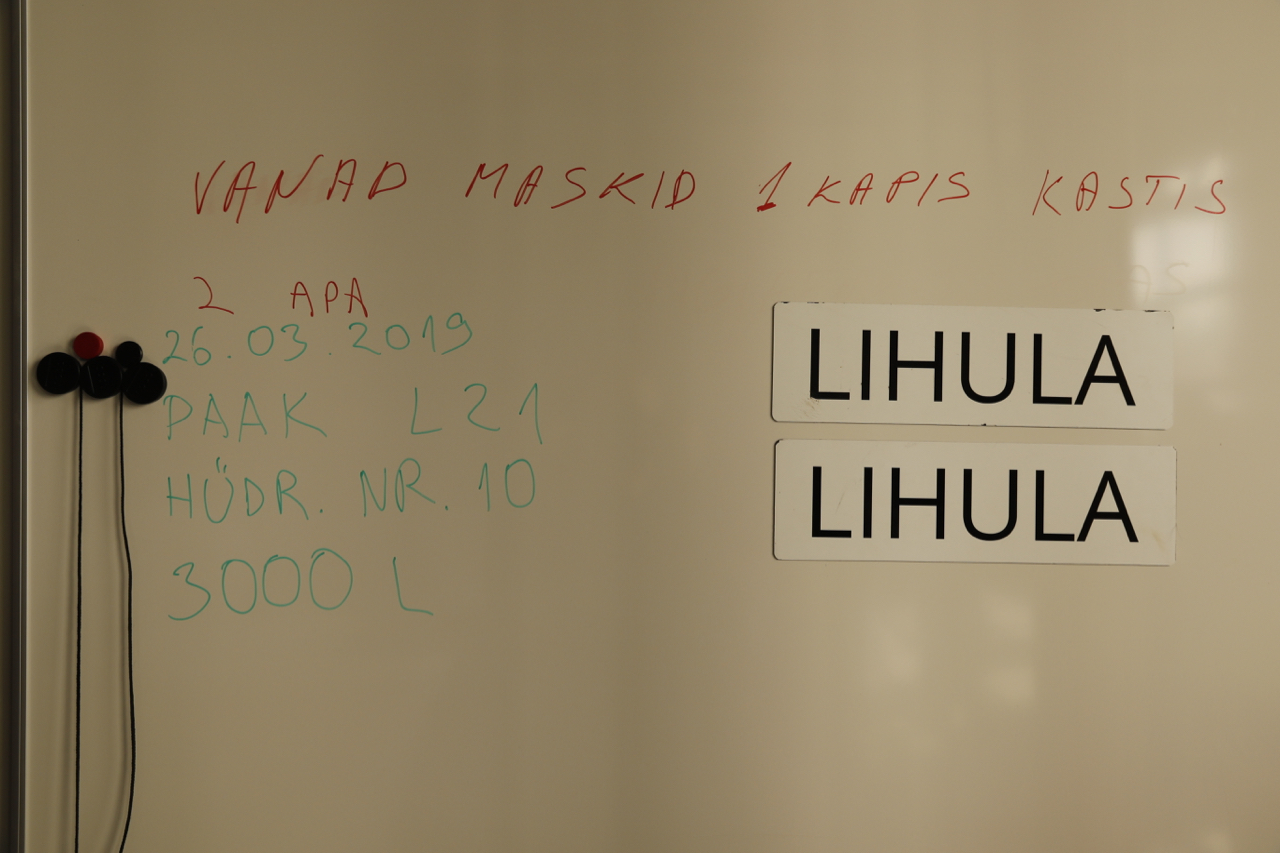 VANAD MASKID 1 KAPIS KASTIS
2 APA
26.03.2019
PAAK L21
HÜDR. NR. 10
3000 L
LIHULA
LIHULA